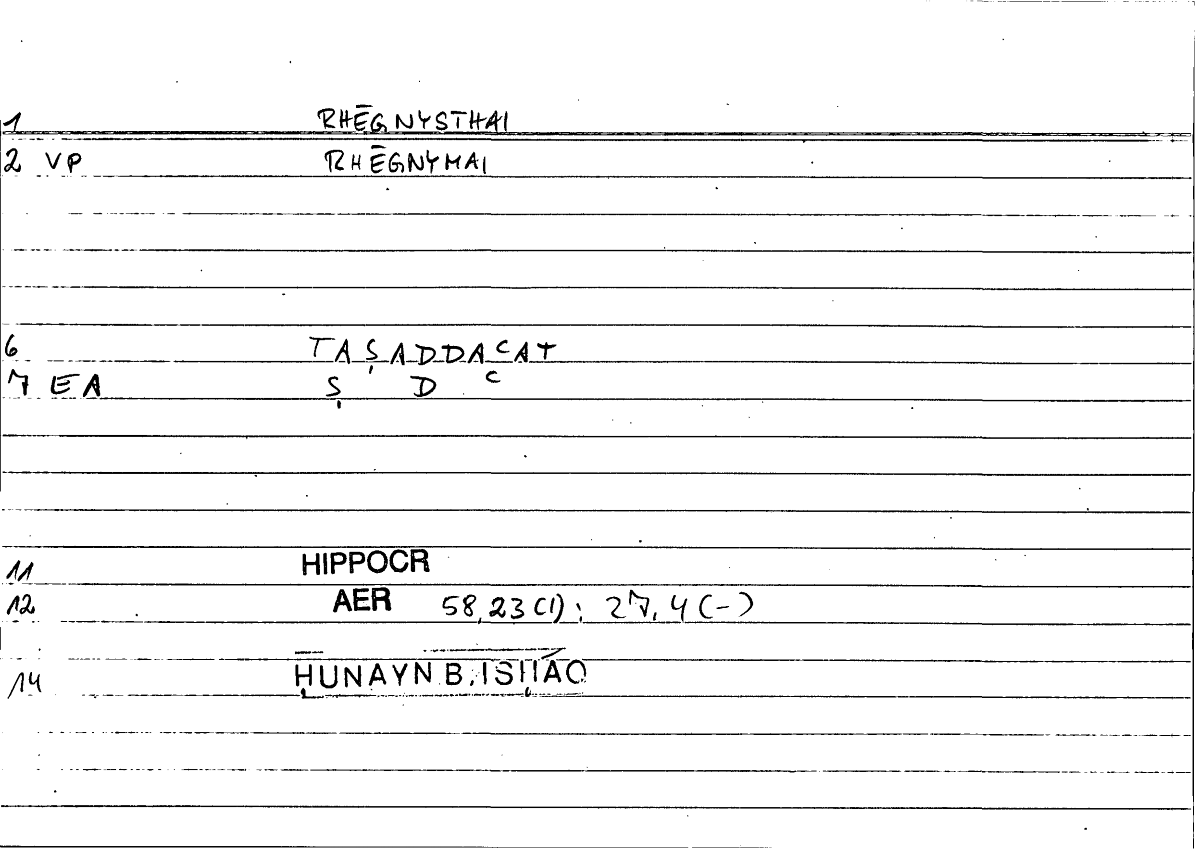 1 RHĒGNYSTHAI
2 VP RHĒGNYMAI
6 TAṢADDAᶜAT
7 EA Ṣ D ᶜ
11 HIPPOCR
12 AER 58,23(1); 27,4(-)
14 ḤUNAYN B. ISḤĀQ